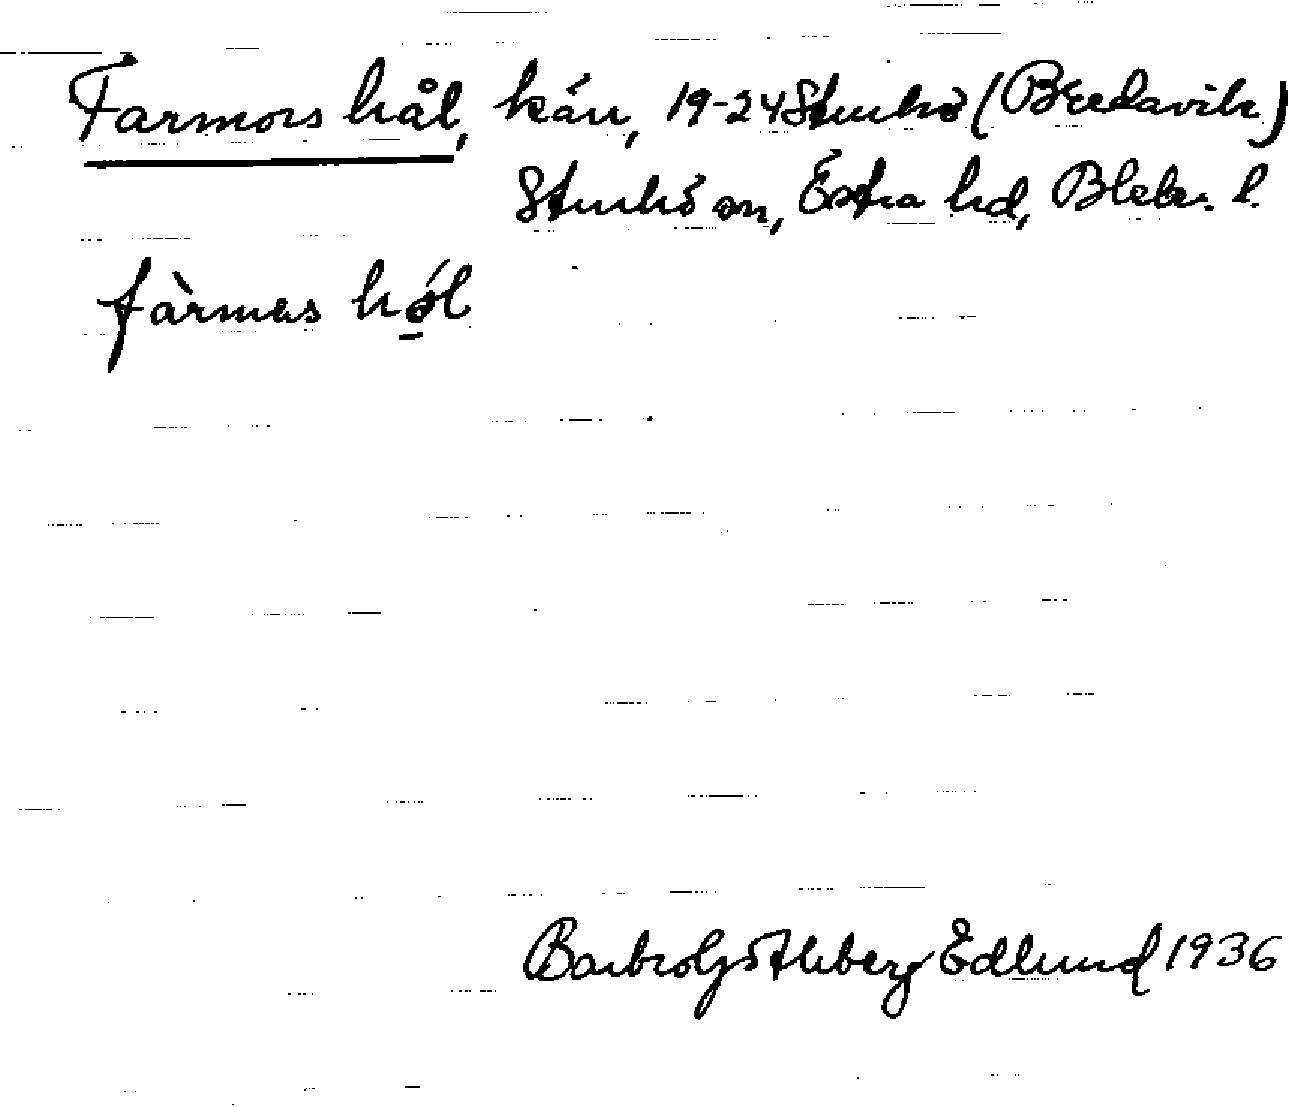 Farmors hål, kärr, 19-24 Sturkö (Bredavik)
Sturkö sn, Östra hd, Blek. l.
fàrmas hó̱l
Barbro Götheberg Edlund 1936